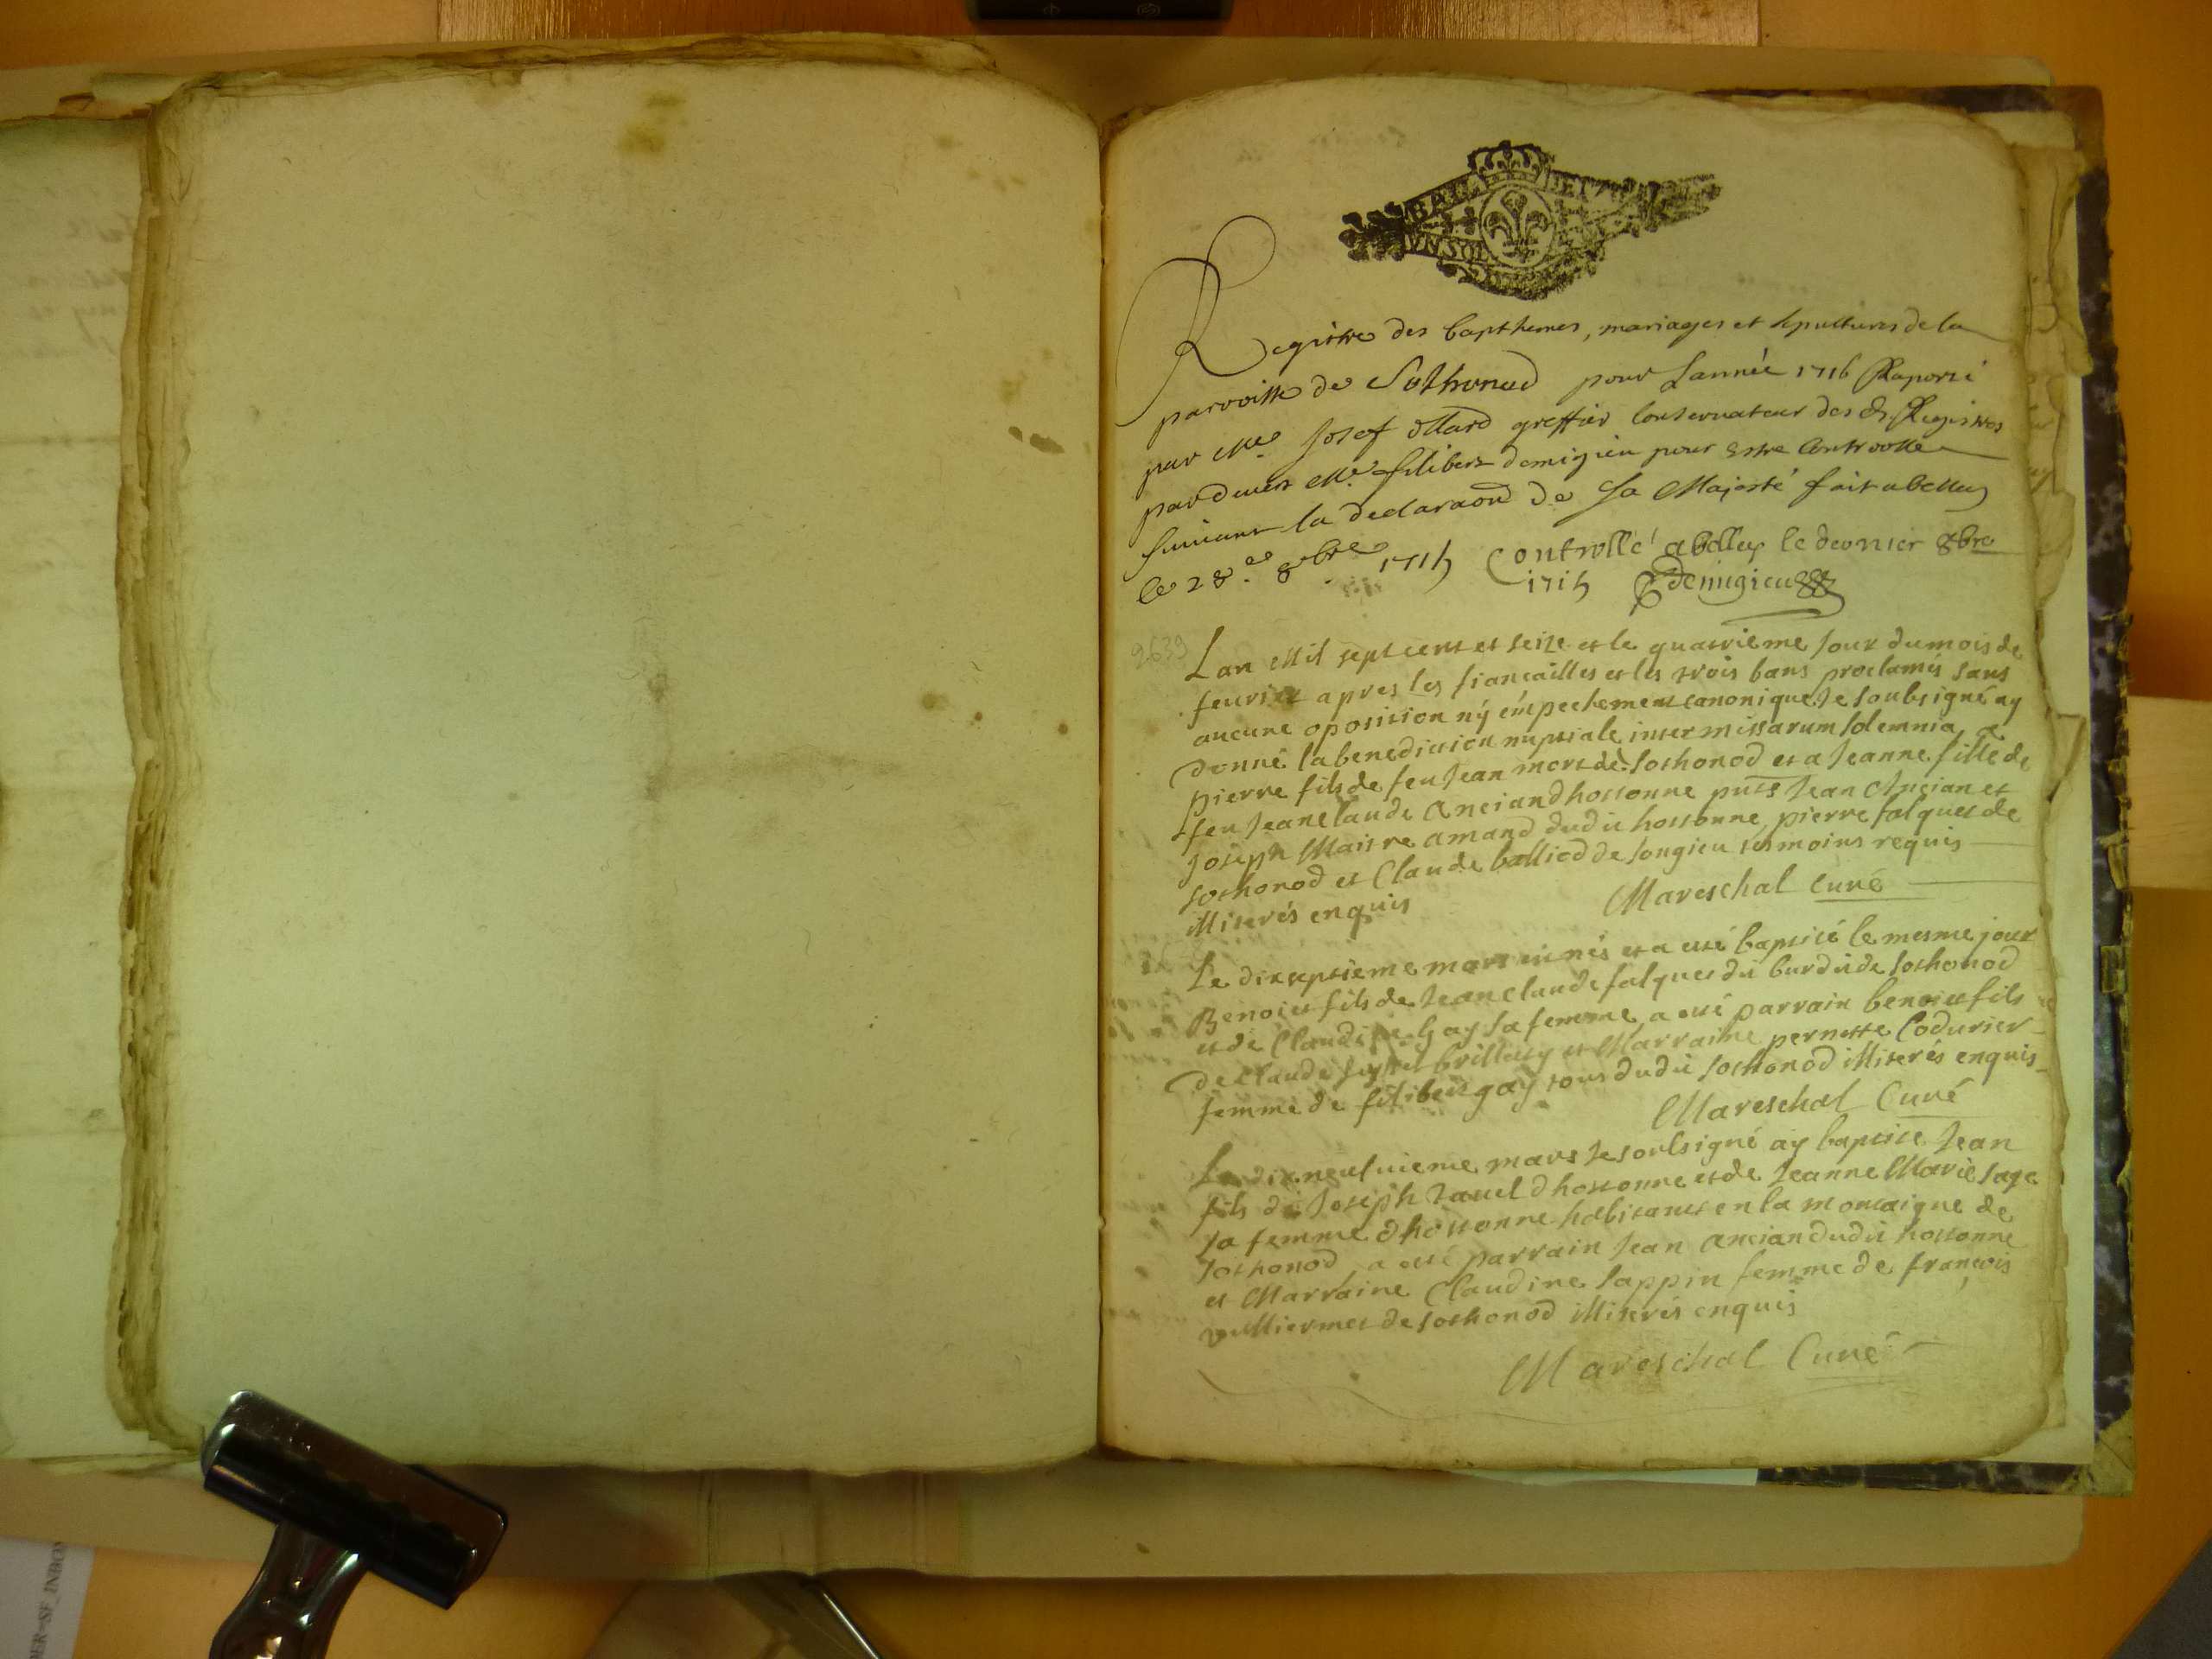 BRES ET
UN SOL
Registre des bapthemes, mariages et sepultures de la
parroisse de Sothonod pour Lannée 1716 Raporté
par Me Josef ollard greffier Conservateur des d. Registres
pardevers Me. filibert demigieu pour estre Controolle
suivant la declaraon de Sa Majesté fait a belley
le 28e. 8bre 1715 Controllé a belley le dernier 8bre
1715 demigieu
2639
Lan Mil sept cent et seize et le quatrieme jour du mois de
feurier apres les fiancailles et les trois bans proclamés sans
aucune oposition ny empechement canonique Je soubsigné ay
donné la benediction nuptiale inter missarum solemnia a
pierre fils de feu Jean mort de Sothonod et a Jeanne fille de
feu Jeanclaude Anciand hotonne puts Jean Ancian et
Joseph Maitre amand dudit hotonne, pierre falquet de
sothonod et Claude balliod de songieu tesmoins requis
illiterés enquis Mareschal curé
Le dixseptieme mars est nés et a esté baptisé le mesme jour
Benoist fils de Jeanclaude falquet dit burdit de sothonod
et de Claudine gay sa femme, a esté parrain benoist fils
de Claude brillat et Marraine pernette Codurier
femme de filibert gay tous dudit sothonod illiterés enquis
Mareschal Curé
Le dixneufuieme mars Je soubsigné ay baptisé Jean
fils de Joseph Tavel dhotonne et de Jeanne Marie sage
sa femme dhotonne habitants en la montaigne de
sothonod, a esté parrain Jean anciand dudit hotonne
et Marraine Claudine sappin femme de françois
vulliermet de sothonod illiterés enquis
Mareschal Curé